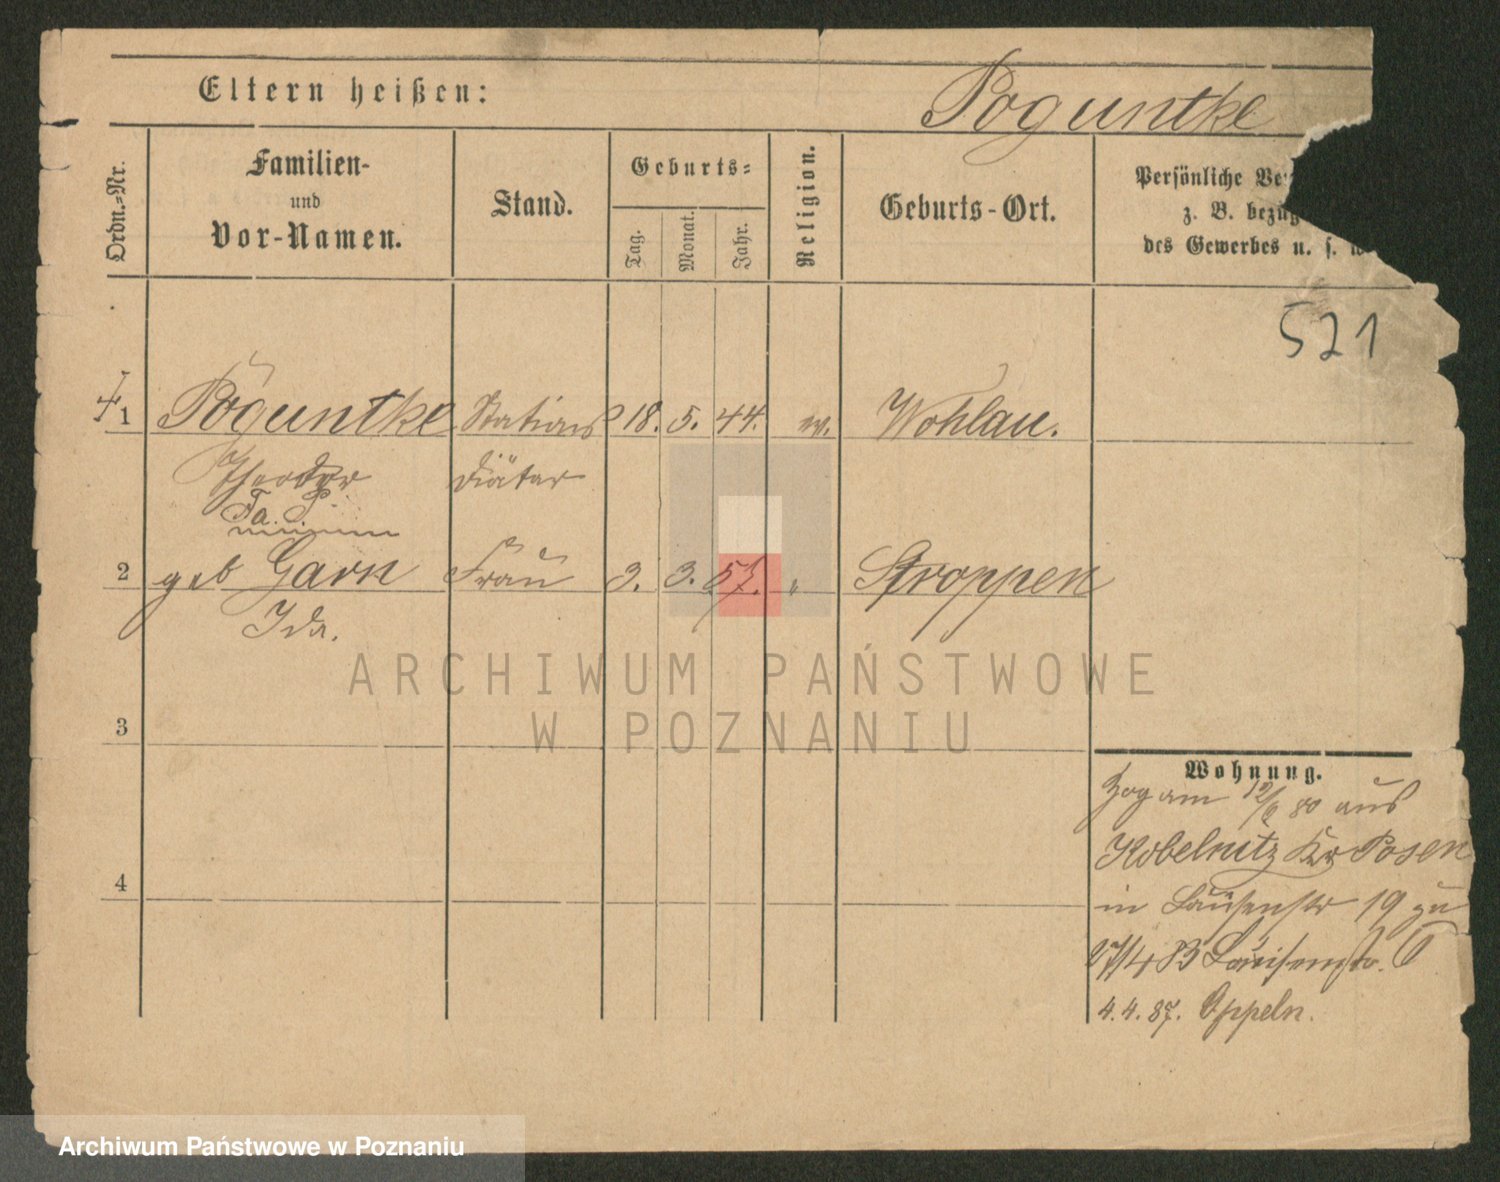 Eltern heißen:
Poguntke
Ordn.-Nr.
Familien-
und
Vor-Namen.
Stand.
Geburts-
Tag.
Monat.
Jahr.
Religion.
Geburts-Ort.
Persönliche Ve
z. B. bezüg
des Gewerbes u. s. w
521
1 Poguntke Stations 18. 5. 44. ev. Wohlau.
Theodor Diätar
2 geb Garn Frau 3. 3. 57. " Stroppen
Ida.
3
4
Wohnung.
Zog am 12/9 80 aus
Kobelnitz Kr Posen
in Louisenstr 19 zu
27/4 83 Louisenstr.
4.4.87. Oppeln.
ARCHIWUM PAŃSTWOWE
W POZNANIU
Archiwum Państwowe w Poznaniu